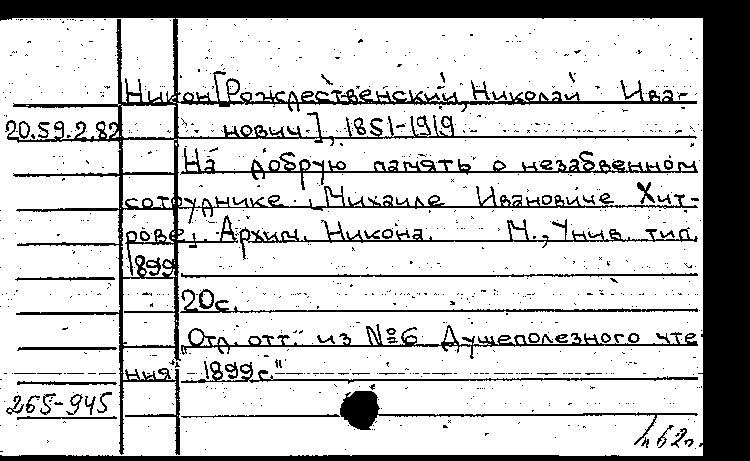 Никон[Рождественский, Николай Ива-
20.59.2.82 нович], 1851-1919
На добрую память о незабвенном
сотруднике [Михаиле Ивановиче Хит-
рове]. Архим. Никона. М., Унив. тип.
1899
20с.
"Отд. отт." из №6 Душеполезного чте
ния 1899г."
265-945